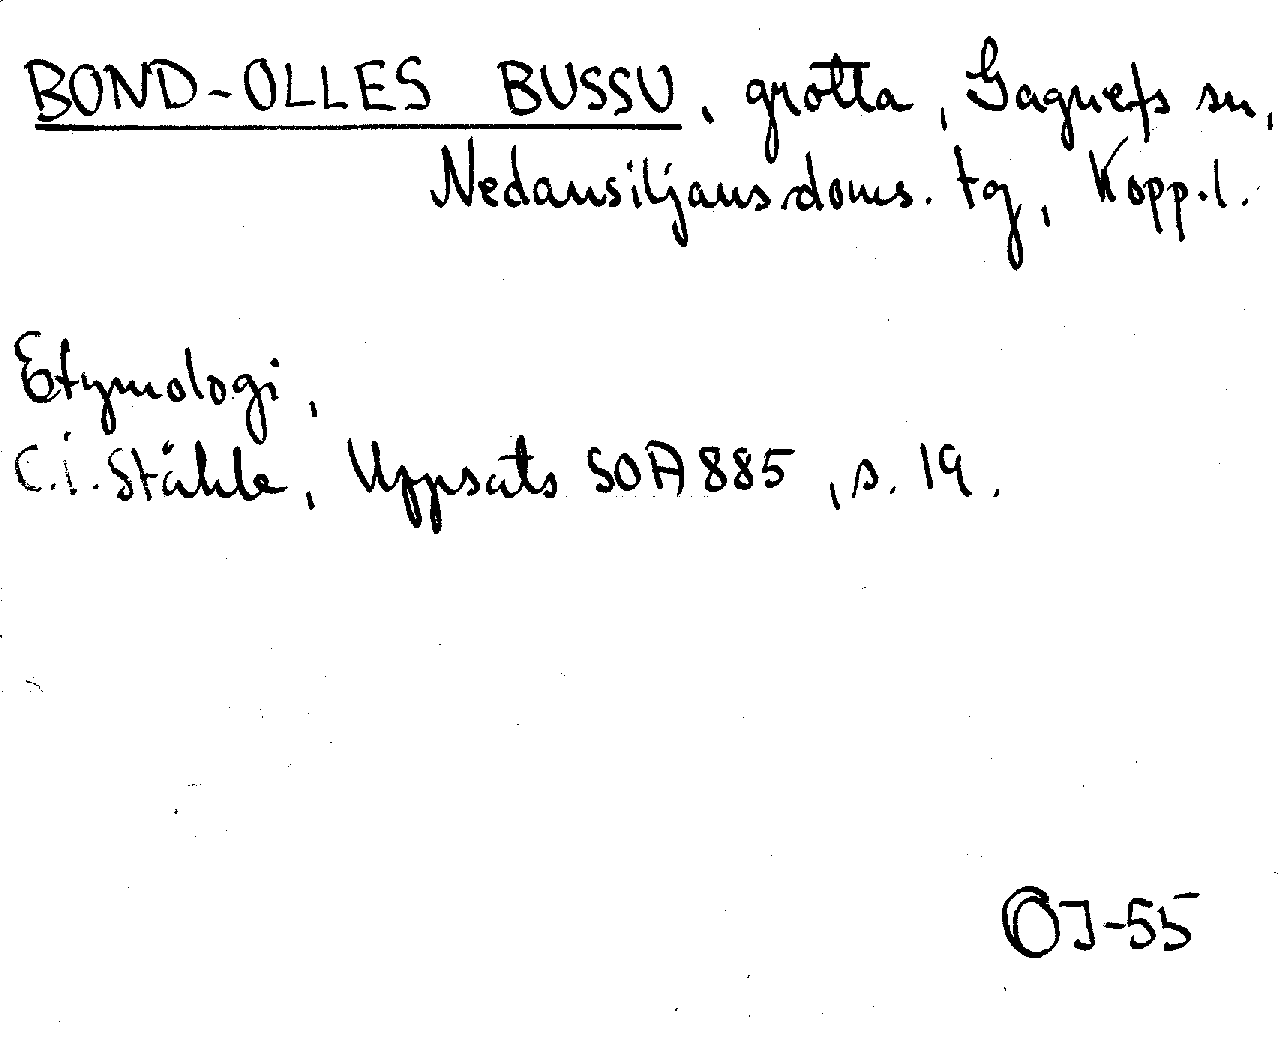 BOND-OLLES BUSSU, grotta, Gagnefs sn,
Nedansiljans doms. tg, Kopp.l.
Etymologi,
C.I. Ståhle, Uppsats SOA 885, s. 19.
OJ-55